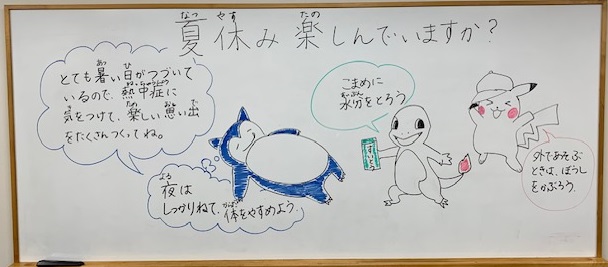 夏休み 楽しんでいますか？
とても暑い日がつづいて
いるので、熱中症に
気をつけて、楽しい思い出
をたくさんつくってね。
夜は
しっかりねて、体をやすめよう。
こまめに
水分をとろう
すいとう
外であそぶ
ときは、ぼうし
をかぶろう。